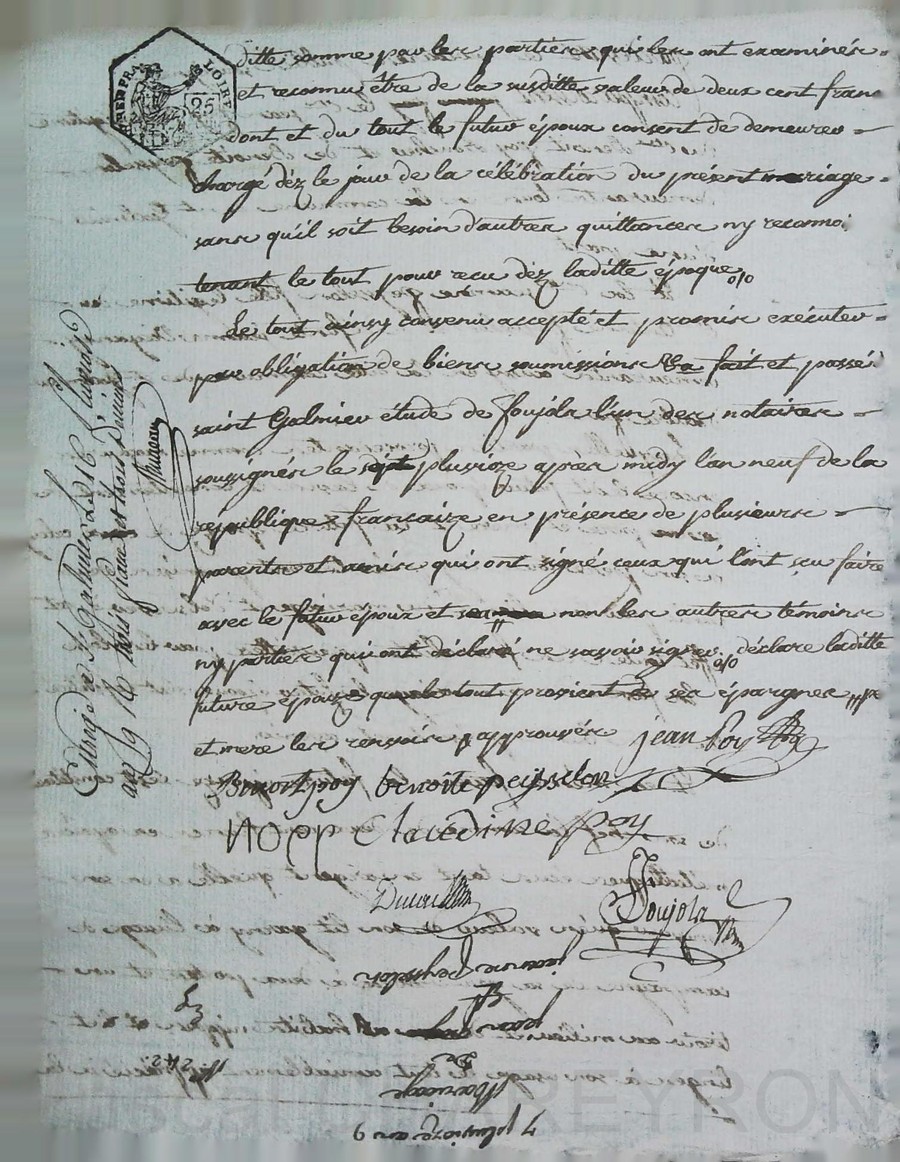 ditte somme par les parties qui les ont examinés =
et reconnu être de la susditte valeur de deux cent franc
dont et du tout le futur époux consent de demeurer =
chargé déz le jour de la célébration du présent mariage =
sans qu'il soit besoin d'autres quittances ny reconnoi
tenant le tout pour recu déz laditte époque o/o
Le tout ainsy convenu accepté et promis exécuter =
par obligation de biens soumissions fait et passé
saint Galmier étude de Foujols l'un des notaires =
soussignés le sept pluvioze après midy l'an neuf de la
republique francaize en présence de plusieurs =
parents et amis qui ont signé ceux qui l'ont sçu faire
avec le futur époux et non les autres témoins
ny parties qui ont déclaré ne savoir signer. o/o déclare laditte
future épouze que le tout provient de ses épargnes
et mere les renvois approuvés jean poy
Benoit poy benoite peysselon
Claudine poy
Foujols
LOIRE
25
Enregé à St Galmier le 16 pluviose
an 9
peysselon
poy
De
Mariage
7 pluvioze an 9
PEYRON